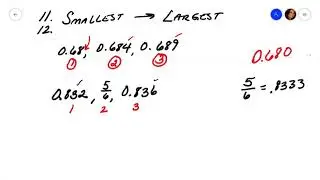 11. SMALLEST → LARGEST
12.
0.68, 0.684, 0.689
① ② ③
0.680
0.832, 5/6, 0.836
1 2 3
5/6 = .8333